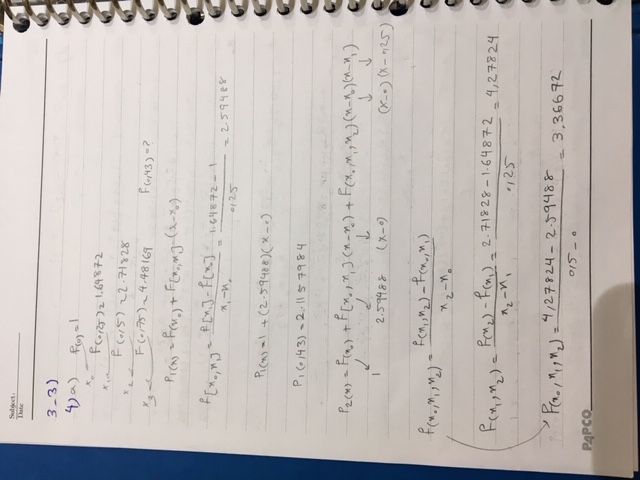 Subject:
Date
3-3)
4) a) f(0)=1
x₀
f(0,25)=1.64872
x₁
f(0,5)=2.71828
x₂
f(0,75)=4.48169 f(0,43)=?
x₃
P₁(x)=f(x₀)+f[x₀,x₁](x-x₀)
f[x₀,x₁]=(f[x₁]-f[x₀])/(x₁-x₀)=(1.64872-1)/0,25=2.59488
P₁(x)=1+(2.59488)(x-0)
P₁(0,43)=2.1157984
P₂(x)=f(x₀)+f[x₀,x₁](x-x₀)+f(x₀,x₁,x₂)(x-x₀)(x-x₁)
↓ ↓ ↓ ↓ ↓
1 2.59488 (x-0) (x-0)(x-0,25)
f(x₀,x₁,x₂)=(f(x₁,x₂)-f(x₀,x₁))/(x₂-x₀)
f(x₁,x₂)=(f(x₂)-f(x₁))/(x₂-x₁)=(2.71828-1.64872)/0,25=4,27824
f(x₀,x₁,x₂)=(4,27824-2.59488)/(0,5-0)=3,36672
PAPCO